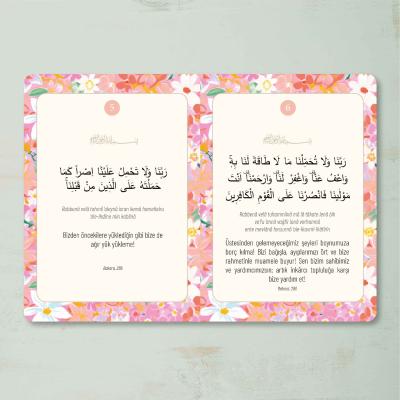 5
رَبَّنَا وَلَا تَحْمِلْ عَلَيْنَا اِصْراً كَمَا
حَمَلْتَهُ عَلَى الَّذ۪ينَ مِنْ قَبْلِنَاۚ
Rabbenâ velâ tahmil 'aleynâ ısran kemâ hameltehu
'ale-llezîne min kablinâ
Bizden öncekilere yüklediğin gibi bize de
ağır yük yükleme!
Bakara, 286
6
رَبَّنَا وَلَا تُحَمِّلْنَا مَا لَا طَاقَةَ لَنَا بِه۪ۚ
وَاعْفُ عَنَّا۠ وَاغْفِرْ لَنَا۠ وَارْحَمْنَا۠ اَنْتَ
مَوْلٰينَا فَانْصُرْنَا عَلَى الْقَوْمِ الْكَافِر۪ينَ
Rabbenâ velâ tuhammilnâ mâ lâ tâkate lenâ bih
ve'fu 'annâ vağfir lenâ verhamnâ
ente mevlânâ fensurnâ 'ale-lkavmi-lkâfirîn
Üstesinden gelemeyeceğimiz şeyleri boynumuza
borç kılma! Bizi bağışla, ayıplarımızı ört ve bize
rahmetinle muamele buyur! Sen bizim sahibimiz
ve yardımcımızsın; artık inkârcı topluluğa karşı
bize yardım et!
Bakara, 286